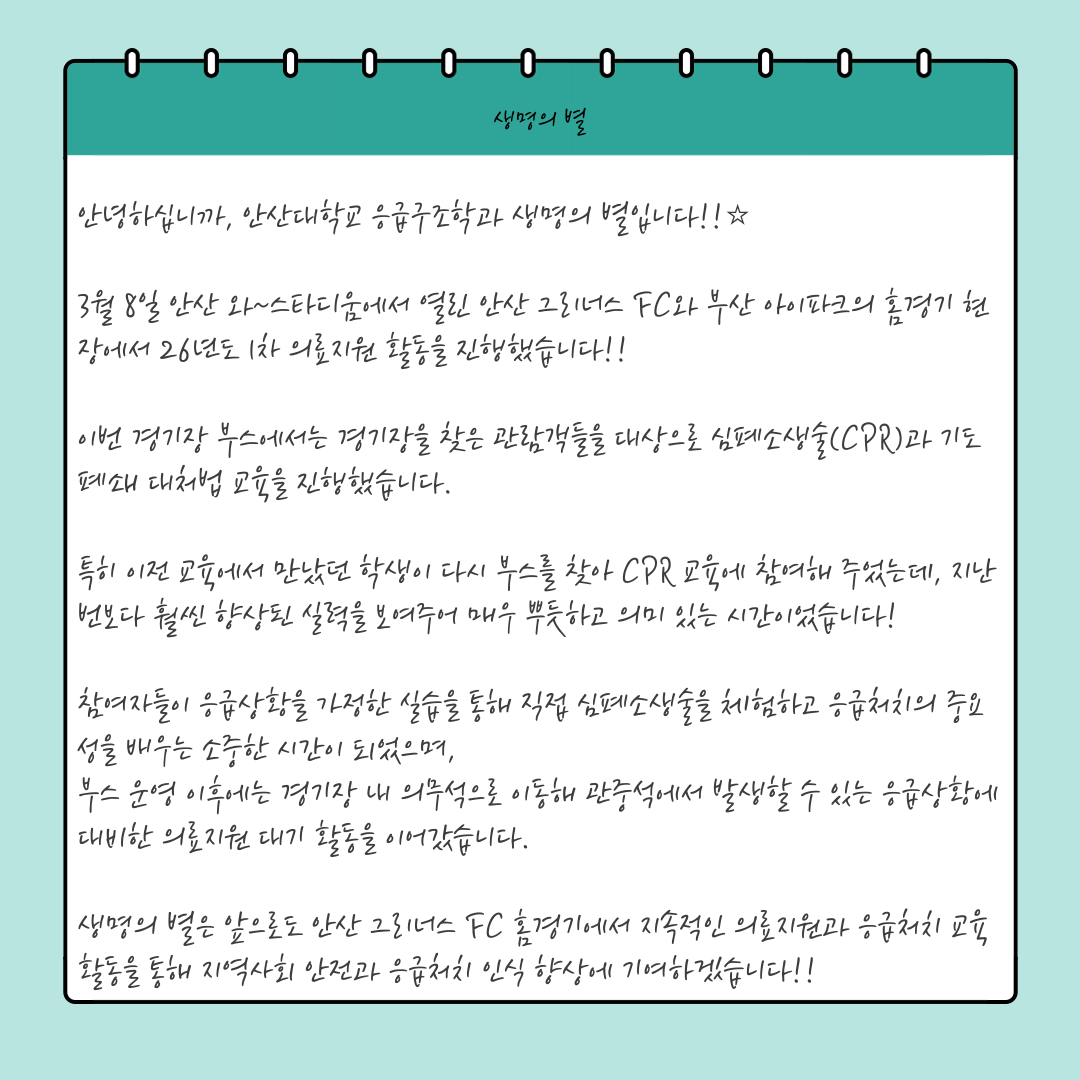 생명의 별
안녕하십니까, 안산대학교 응급구조학과 생명의 별입니다!!☆
3월 8일 안산 와~스타디움에서 열린 안산 그리너스 FC와 부산 아이파크의 홈경기 현
장에서 26년도 1차 의료지원 활동을 진행했습니다!!
이번 경기장 부스에서는 경기장을 찾은 관람객들을 대상으로 심폐소생술(CPR)과 기도
폐쇄 대처법 교육을 진행했습니다.
특히 이전 교육에서 만났던 학생이 다시 부스를 찾아 CPR 교육에 참여해 주었는데, 지난
번보다 훨씬 향상된 실력을 보여주어 매우 뿌듯하고 의미 있는 시간이었습니다!
참여자들이 응급상황을 가정한 실습을 통해 직접 심폐소생술을 체험하고 응급처치의 중요
성을 배우는 소중한 시간이 되었으며,
부스 운영 이후에는 경기장 내 의무석으로 이동해 관중석에서 발생할 수 있는 응급상황에
대비한 의료지원 대기 활동을 이어갔습니다.
생명의 별은 앞으로도 안산 그리너스 FC 홈경기에서 지속적인 의료지원과 응급처치 교육
활동을 통해 지역사회 안전과 응급처치 인식 향상에 기여하겠습니다!!